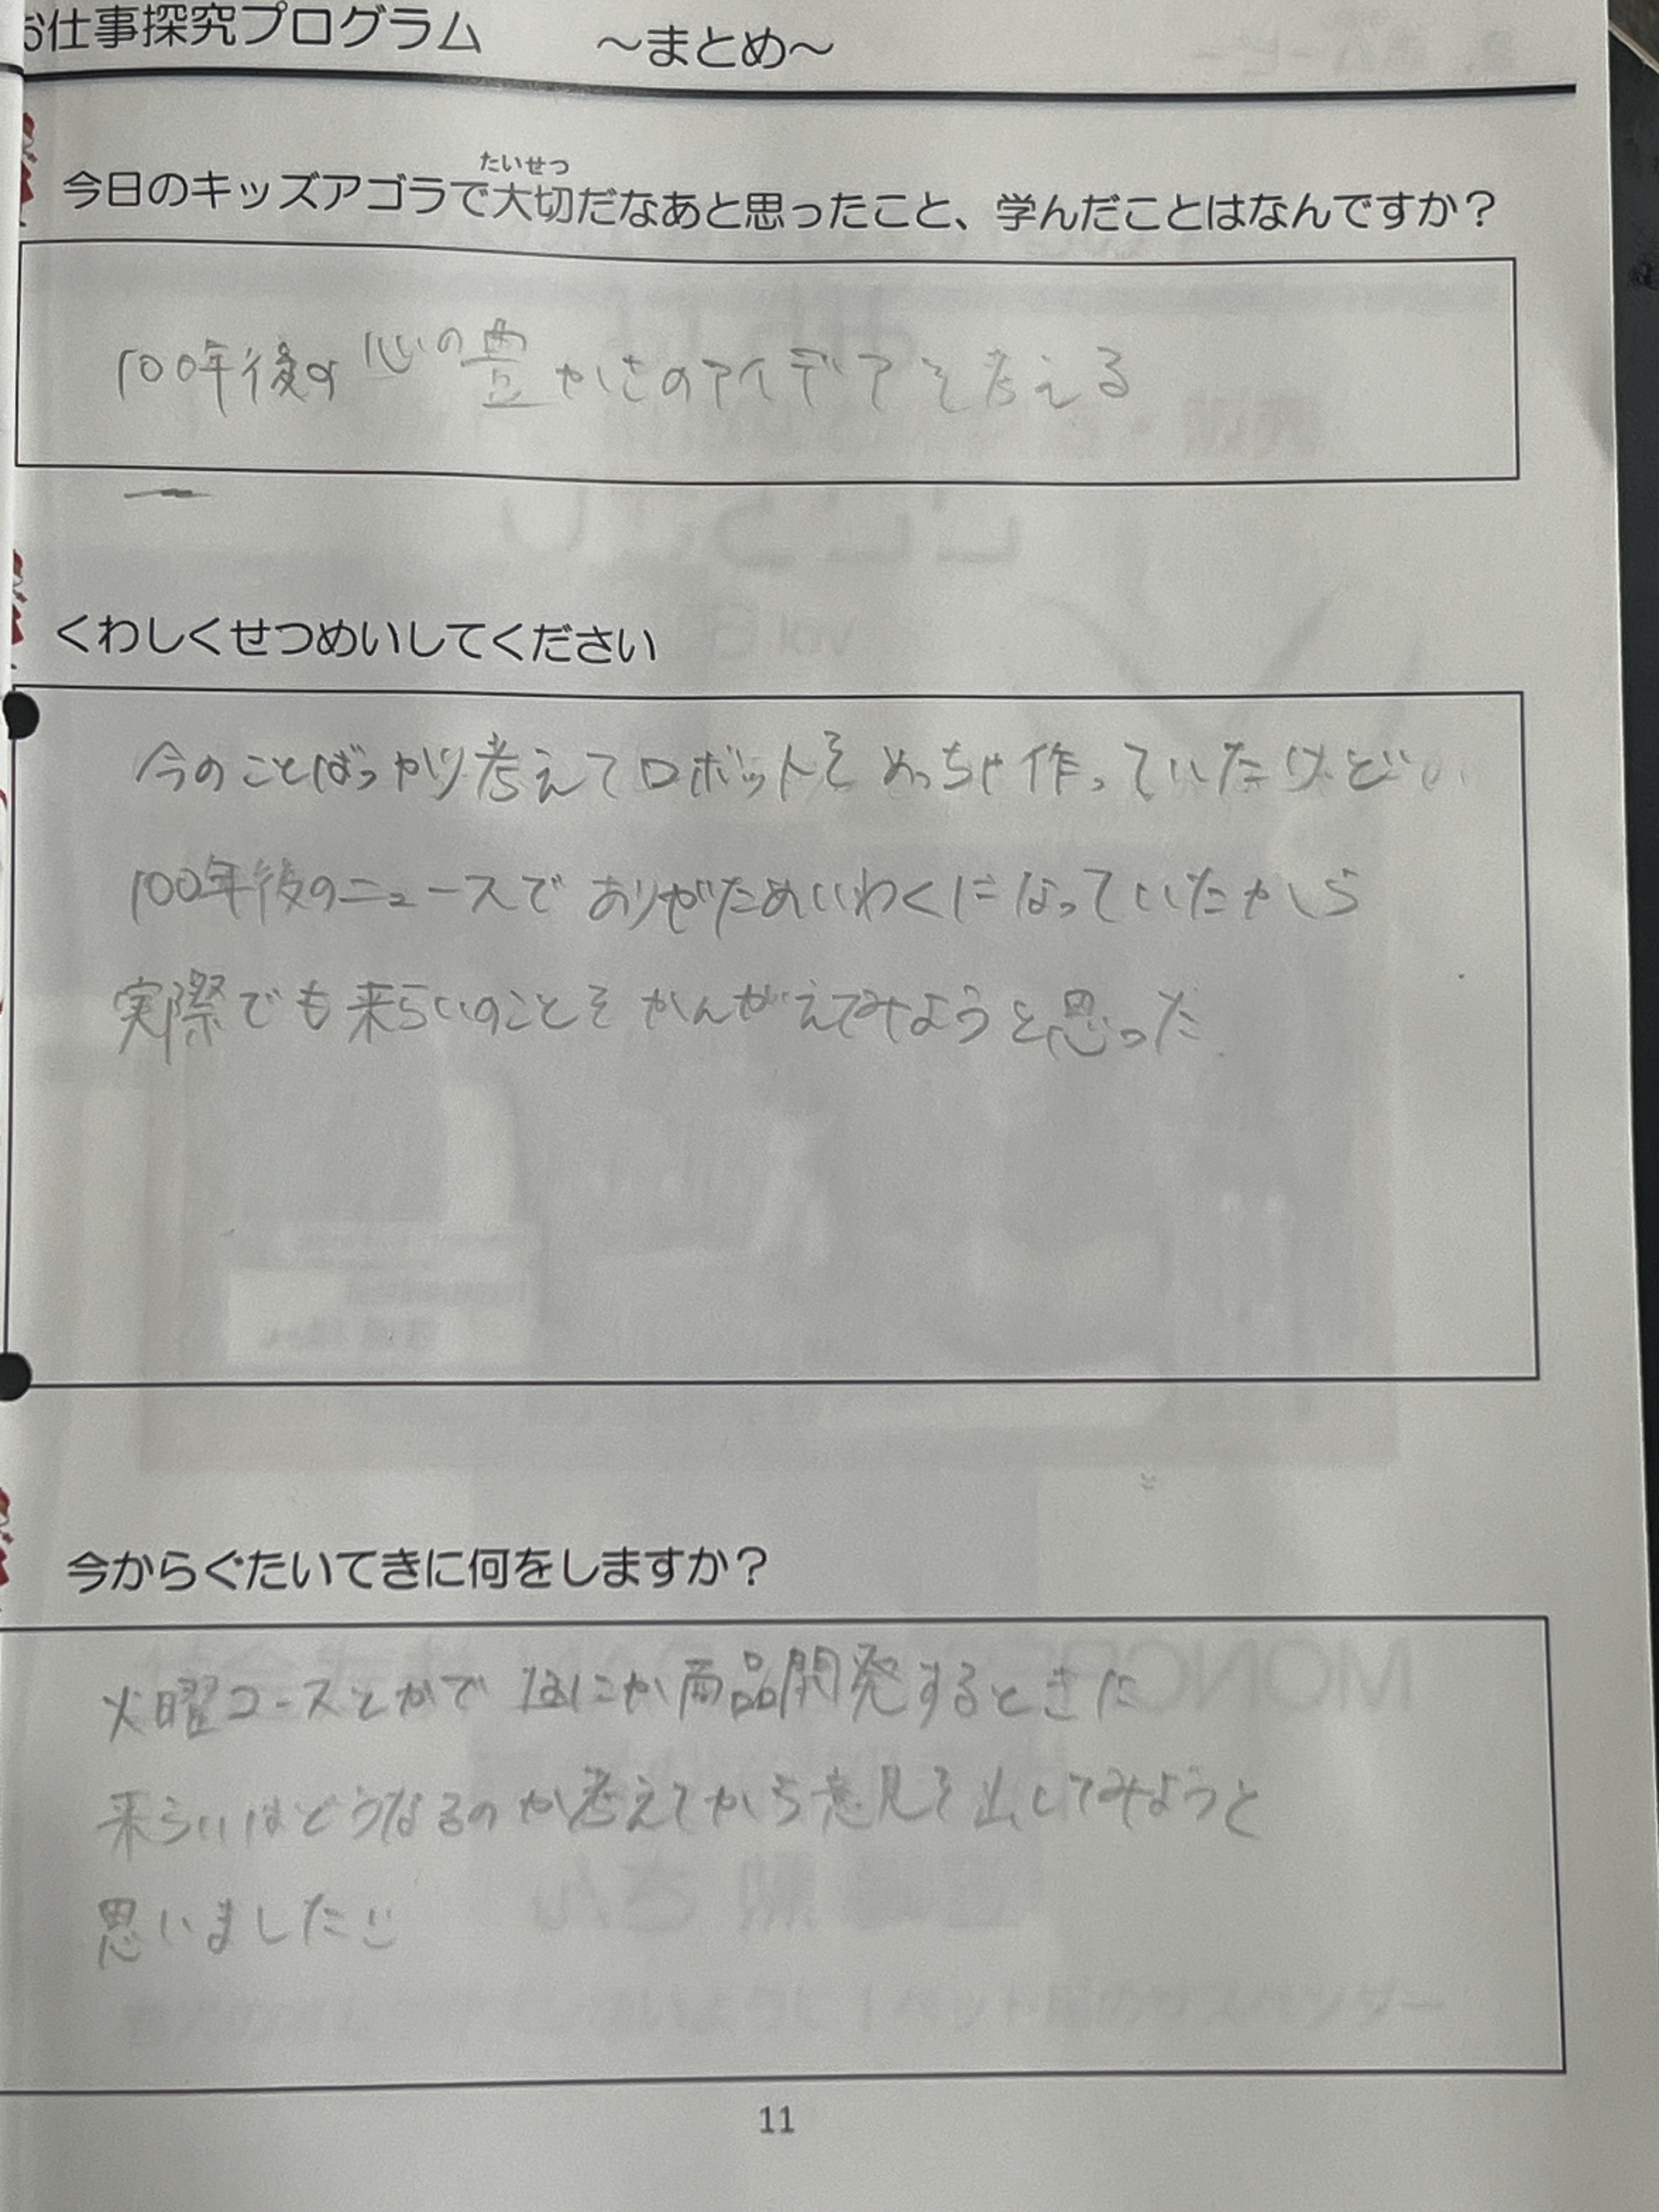 お仕事探究プログラム　～まとめ～
たいせつ
今日のキッズアゴラで大切だなあと思ったこと、学んだことはなんですか？
100年後の心の豊かさのアイデアを考える
くわしくせつめいしてください
今のことばっかり考えてロボットをめっちゃ作っていたけど
100年後のニュースでありがためいわくになっていたから
実際でも来らいのことをかんがえてみようと思った
今からぐたいてきに何をしますか？
火曜コースとかでなにか商品開発するときに
来らいはどうなるのか考えてから意見を出してみようと
思いました
11